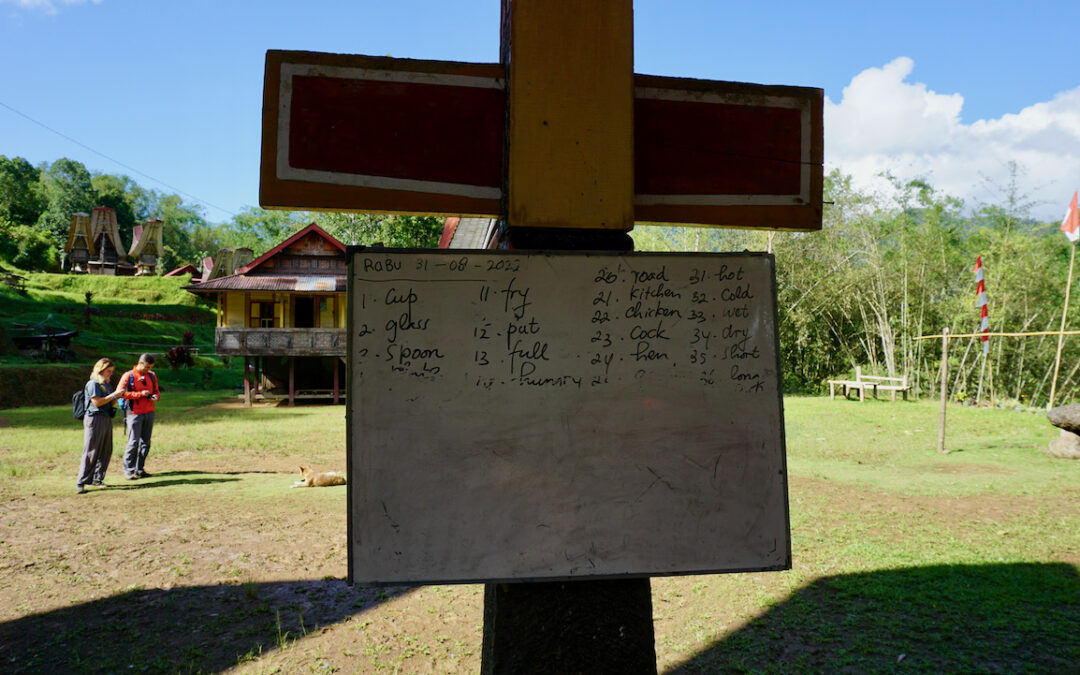 RaBu 31-08-2022
1. Cup
2. glass
3. Spoon
11. fry
12. put
13. full
hungry
20. road
21. kitchen
22. chicken
23. Cock
24. hen
31. hot
32. Cold
33. wet
34. dry
35. short
36. long